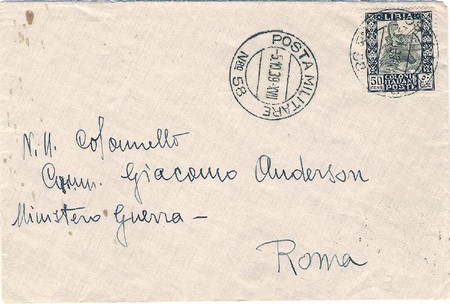 POSTA MILITARE
Nro 58
-5.10.39.XVII
LIBIA
50
COLONIE
ITALIANE
POSTE
CENT
Nro 58
N. H. Colonnello
Comm. Giacomo Anderson
Ministero Guerra -
Roma